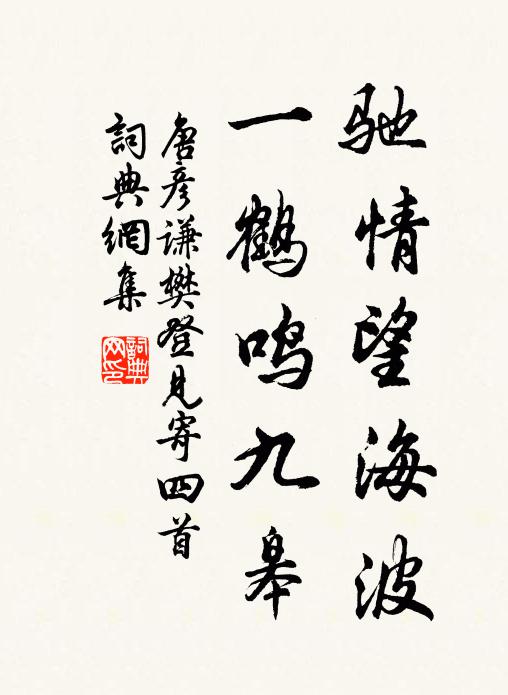 驰情望海波
一鹤鸣九皋
唐彦谦樊登见寄四首
詞典網集
詞典
网印